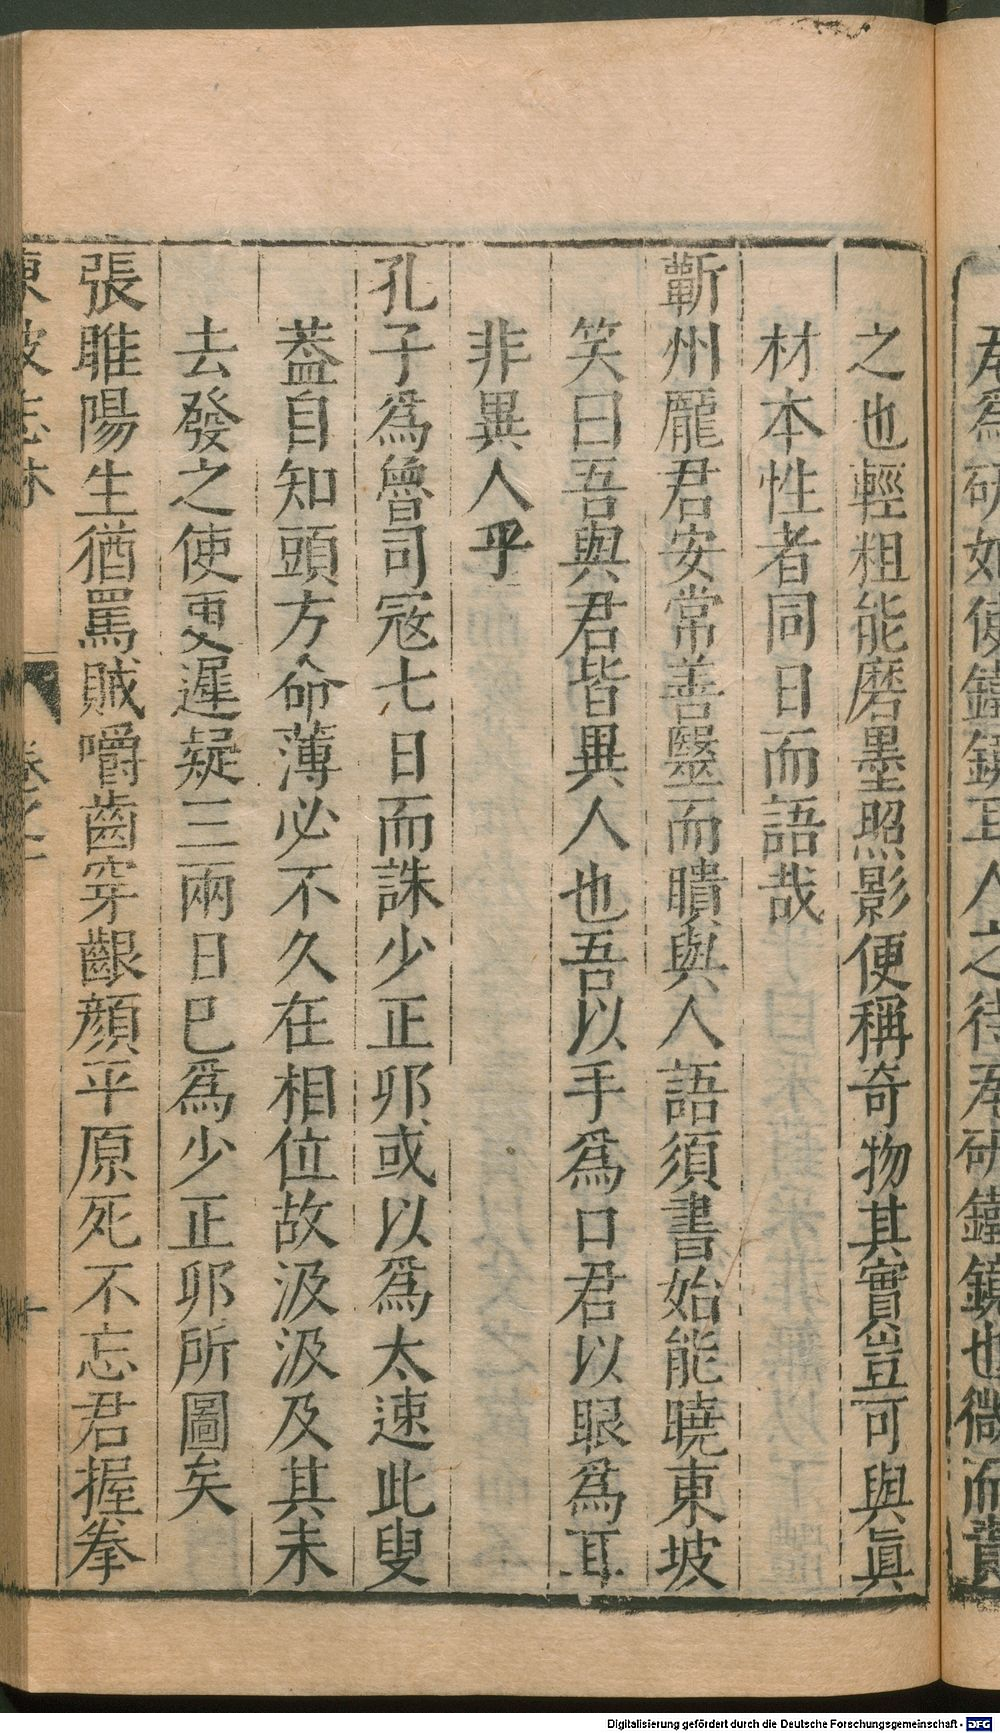 之也輕粗能磨墨照影便稱奇物其實豈可與眞
材本性者同日而語哉
蘄州龐君安常善毉而聵與人語須書始能曉東坡
笑曰吾與君皆異人也吾以手爲口君以眼爲耳
非異人乎
孔子爲魯司宼七日而誅少正夘或以爲太速此叟
葢自知頭方命薄必不久在相位故汲汲及其未
去發之使更遲疑三兩日已爲少正夘所圖矣
張睢陽生猶罵賊嚼齒穿齦顏平原死不忘君握拳
東坡志林 卷之十 十
Digitalisierung gefördert durch die Deutsche Forschungsgemeinschaft - DFG